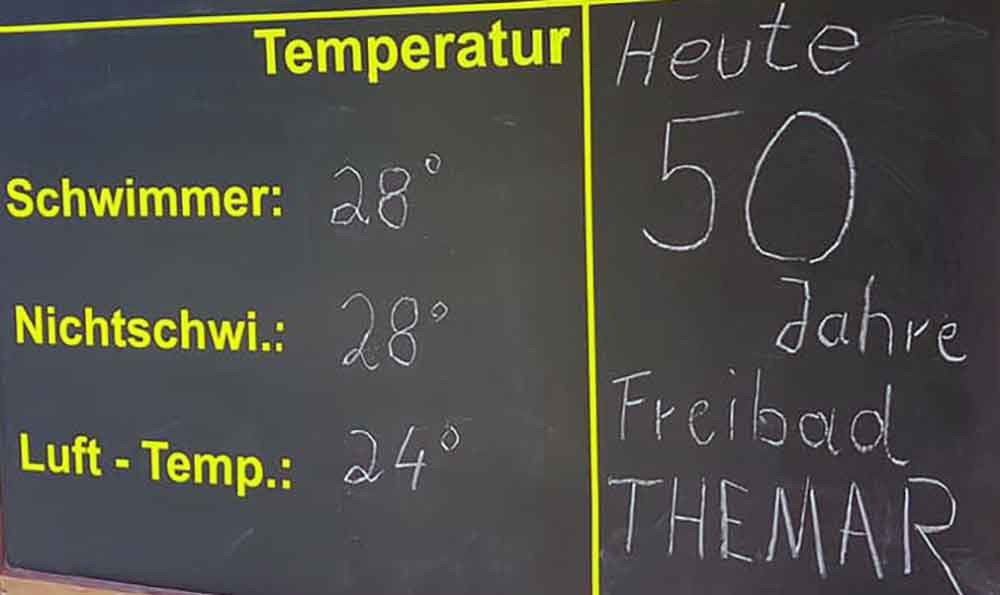 Temperatur
Schwimmer: 28°
Nichtschwi.: 28°
Luft - Temp.: 24°
Heute
50
Jahre
Freibad
THEMAR